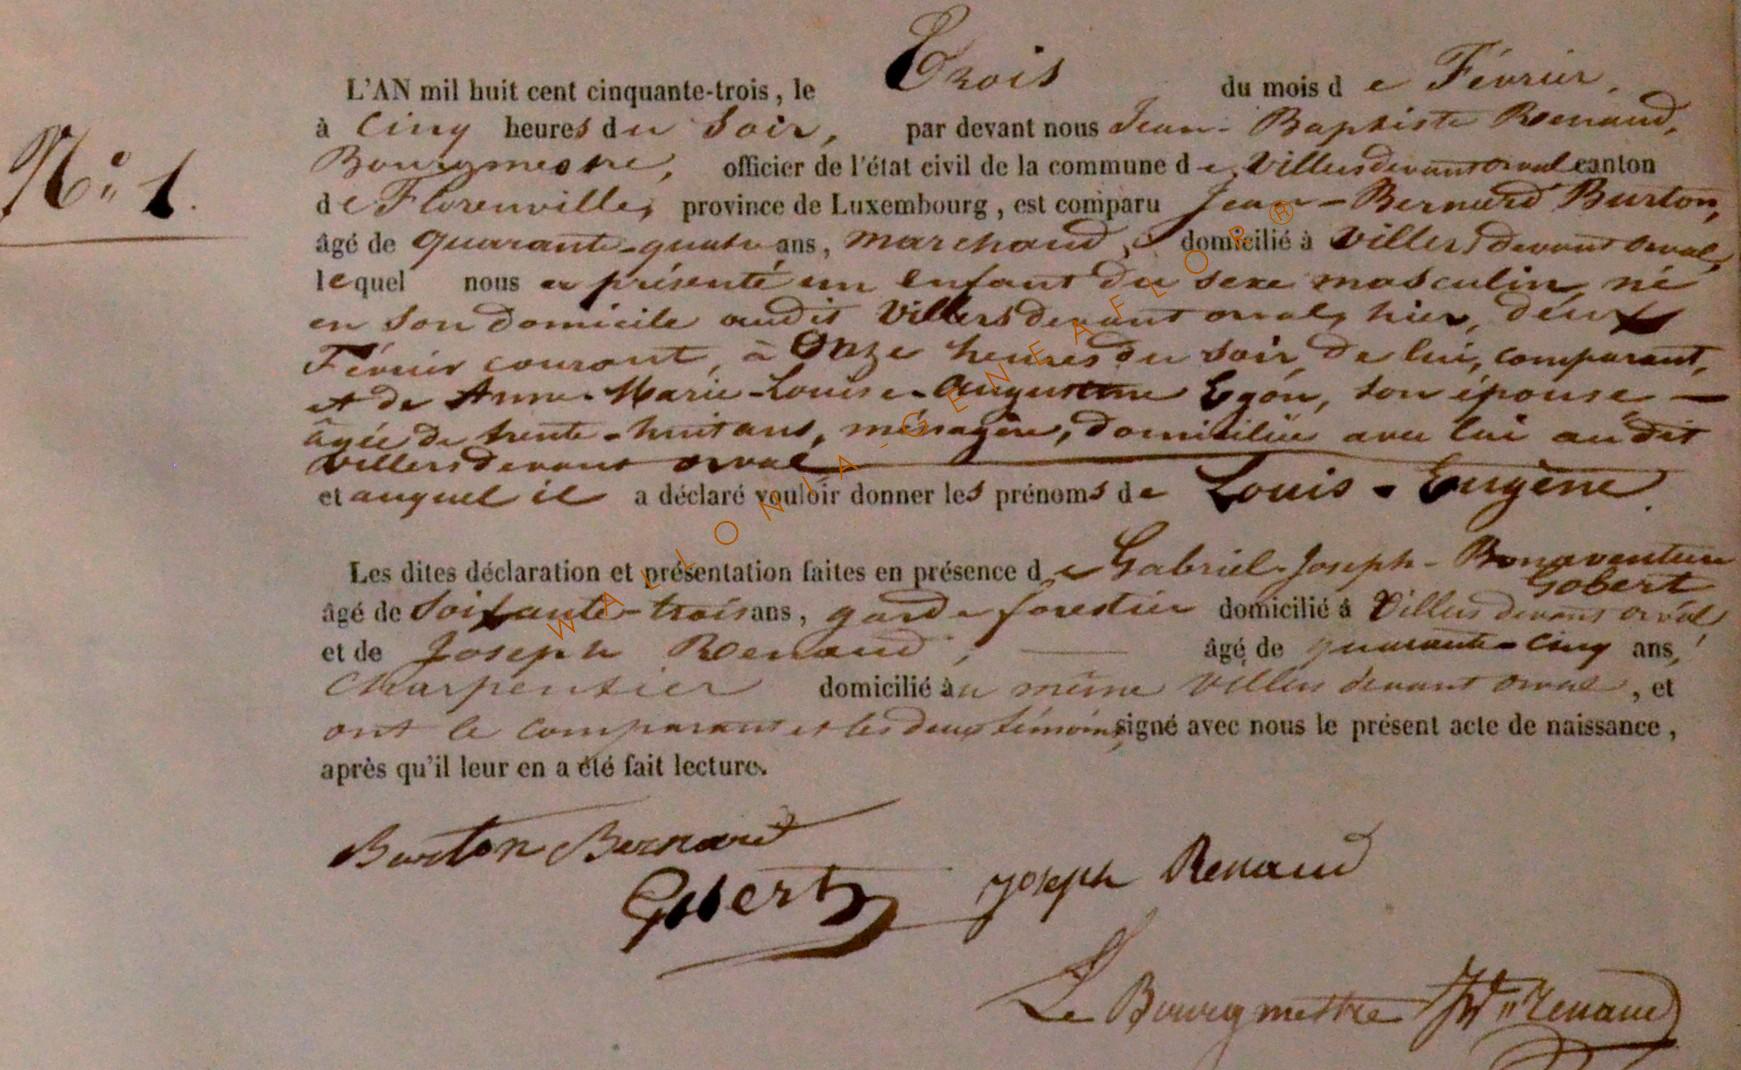 L'AN mil huit cent cinquante-trois, le Trois du mois de Février,
N.° 1.
à Cinq heures du Soir, par devant nous Jean-Baptiste Renaud,
Bourgmestre, officier de l'état civil de la commune de Villersdevantorval canton
de Florenville, province de Luxembourg, est comparu Jean-Bernard Burton,
âgé de quarante-quatre ans, marchand, domicilié à Villersdevantorval,
lequel nous a présenté un enfant du sexe masculin, né
en son domicile audit Villersdevantorval, hier, deux
Février courant, à Onze heures du soir, de lui, comparant,
et de Anne-Marie-Louise-Augustine Egon, son épouse —
âgée de trente-huit ans, ménagère, domiciliée avec lui au dit
Villersdevant orval
et auquel il a déclaré vouloir donner les prénoms de Louis-Eugène.
Les dites déclaration et présentation faites en présence de Gabriel-Joseph-Bonaventure
Gobert
âgé de Soixante-trois ans, garde forestier domicilié à Villersdevant orval,
et de Joseph Renaud, — âgé de quarante-cinq ans,
Charpentier domicilié au même Villers devant orval, et
ont le comparant et les deux témoins, signé avec nous le présent acte de naissance,
après qu'il leur en a été fait lecture.
Burton Bernard
Gobert Joseph Renaud
Le Bourgmestre Renaud
WALLONIA-GENEAFLOR®